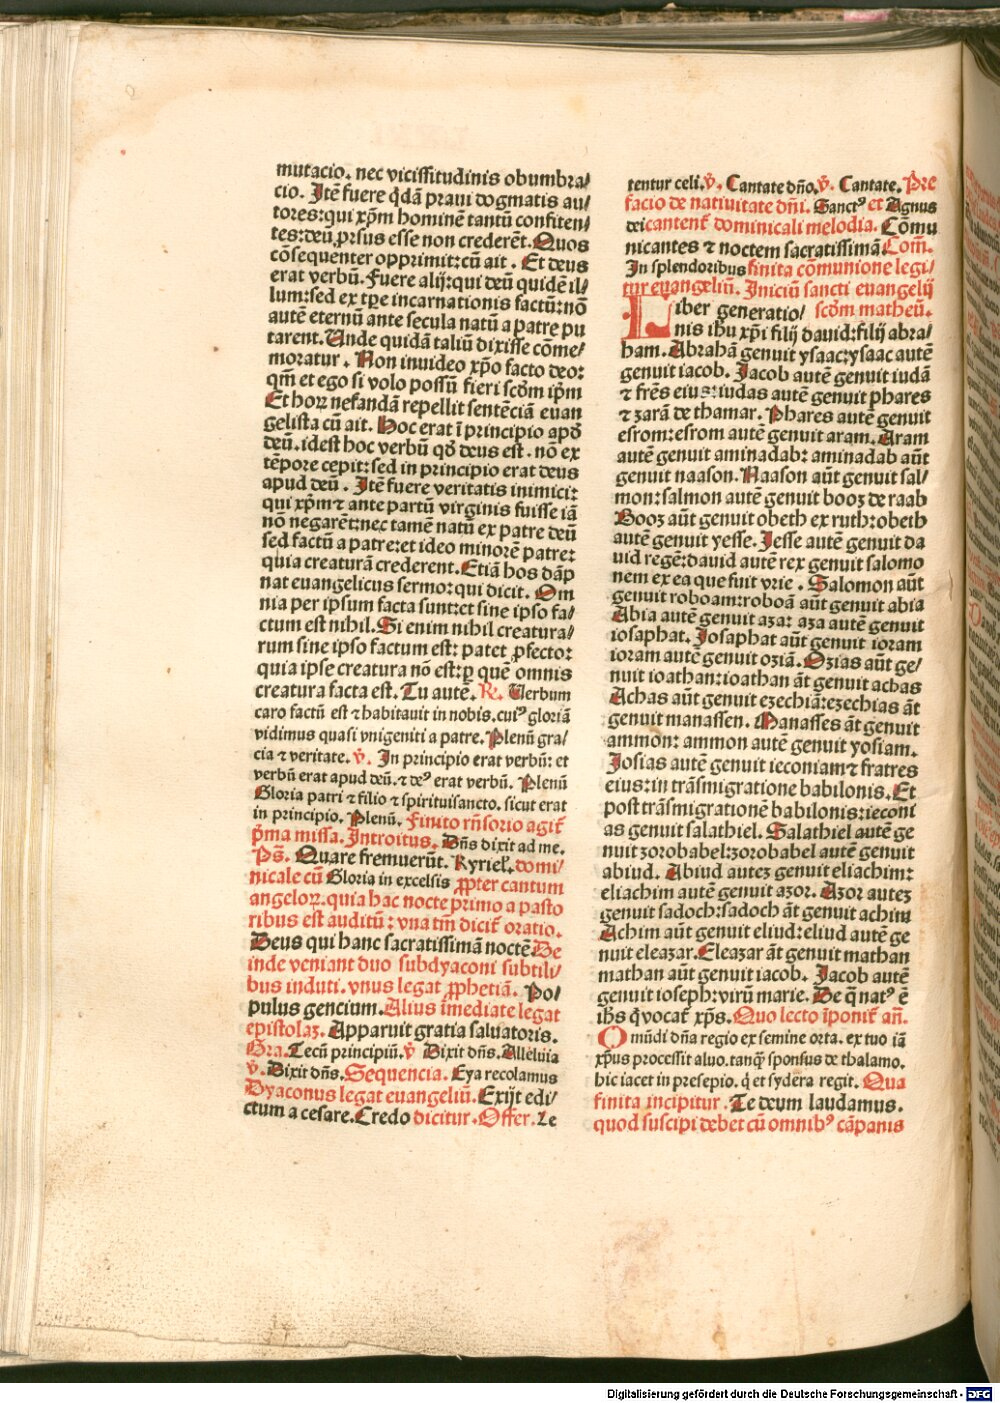 mutacio. nec vicissitudinis obumbra/
cio. Itē fuere q̄dā praui dogmatis au/
tores:qui xp̄m hominē tantū confiten/
tes:deū ꝓrsus esse non crederēt. Quos
cōsequenter opprimit:cū ait. Et deus
erat verbū. Fuere alij:qui deū quidē il/
lum:sed ex tꝑe incarnationis factū:nō
autē eternū ante secula natū a patre pu
tarent. Unde quidā taliū dixisse cōme/
moratur. Non inuideo xp̄o facto deo:
qm̄ et ego si volo possū fieri scd̄m ip̄m
Et hoꝝ nefandā repellit sentēciā euan
gelista cū ait. Hoc erat ī principio apd̄
deū. idest hoc verbū qd̄ deus est. nō ex
tēpore cepit:sed in principio erat deus
apud deū. Itē fuere veritatis inimici:
qui xp̄m ⁊ ante partū virginis fuisse iā
nō negarēt:nec tamē natū ex patre deū
sed factū a patre:et ideo minorē patre:
quia creaturā crederent. Etiā hos dāp
nat euangelicus sermo:qui dicit. Om
nia per ipsum facta sunt:et sine ipso fa/
ctum est nihil. Si enim nihil creatura/
rum sine ipso factum est: patet ꝓfecto:
quia ipse creatura nō est:ꝑ quē omnis
creatura facta est. Tu autē. R̄. Uerbum
caro factū est ⁊ habitauit in nobis. cuiꝰ gloriā
vidimus quasi vnigeniti a patre. Plenū gra/
cia ⁊ veritate. v̄. In principio erat verbū: et
verbū erat apud deū. ⁊ deꝰ erat verbū. Plenū
Gloria patri ⁊ filio ⁊ spirituisancto. sicut erat
in principio. Plenū. Finito rn̄sorio agit̄
p̄ma missa. Introitus. Dn̄s dixit ad me.
Ps̄. Quare fremuerūt. Kyriel̄. domi/
nicale cū Gloria in excelsis ꝓpter cantum
angeloꝝ. quia hac nocte primo a pasto
ribus est auditū: vna tm̄ dicit̄ oratio.
Deus qui hanc sacratissimā noctē De
inde veniant duo subdyaconi subtili/
bus induti. vnus legat ꝓphetiā. Po/
pulus gencium. Alius īmediate legat
epistolaꝫ. Apparuit gratia saluatoris.
Gra. Tecū principiū. v̄ Dixit dn̄s. Alleluia
v̄. Dixit dn̄s. Sequencia. Eya recolamus
Dyaconus legat euangeliū. Exijt edi/
ctum a cesare. Credo dicitur. Offer. Le
tentur celi. v̄. Cantate dn̄o. v̄. Cantate. Pre
facio de natiuitate dn̄i. Sanctꝰ et Agnus
dei cantent̄ dominicali melodia. Cōmu
nicantes ⁊ noctem sacratissimā Com̄.
In splendoribus finita cōmunione legi/
tur euangeliū. Iniciū sancti euangelij
scd̄m matheū.
Liber generatio/
nis ihu xp̄i filij dauid:filij abra/
ham. Abrahā genuit ysaac:ysaac autē
genuit iacob. Jacob autē genuit iudā
⁊ fr̄es eius:iudas autē genuit phares
⁊ zarā de thamar. Phares autē genuit
esrom:esrom autē genuit aram. Aram
autē genuit aminadab: aminadab aūt
genuit naason. Naason aūt genuit sal/
mon:salmon autē genuit booz de raab
Booz aūt genuit obeth ex ruth:obeth
autē genuit yesse. Jesse autē genuit da
uid regē:dauid autē rex genuit salomo
nem ex ea que fuit vrie. Salomon aūt
genuit roboam:roboā aūt genuit abia
Abia autē genuit aza: aza autē genuit
iosaphat. Josaphat aūt genuit ioram
ioram autē genuit oziā. Ozias aūt ge/
nuit ioathan:ioathan āt genuit achas
Achas aūt genuit ezechiā:ezechias āt
genuit manassen. Manasses āt genuit
ammon: ammon autē genuit yosiam.
Josias autē genuit ieconiam ⁊ fratres
eius:in trāsmigratione babilonis. Et
post trāsmigrationē babilonis:ieconi
as genuit salathiel. Salathiel autē ge
nuit zorobabel:zorobabel autē genuit
abiud. Abiud autez genuit eliachim:
eliachim autē genuit azor. Azor autez
genuit sadoch:sadoch āt genuit achim
Achim aūt genuit eliud:eliud autē ge
nuit eleazar. Eleazar āt genuit mathan
mathan aūt genuit iacob. Jacob autē
genuit ioseph:virū marie. De q̄ natꝰ ē
ihs̄ q̄ vocat̄ xp̄s. Quo lecto īponit̄ an̄.
O mūdi dn̄a regio ex semine orta. ex tuo iā
xp̄us processit aluo. tanq̄ sponsus de thalamo.
hic iacet in presepio. q̄ et sydera regit. Qua
finita incipitur. Te deum laudamus.
quod suscipi debet cū omnibꝰ cāpanis
Digitalisierung gefördert durch die Deutsche Forschungsgemeinschaft - DFG